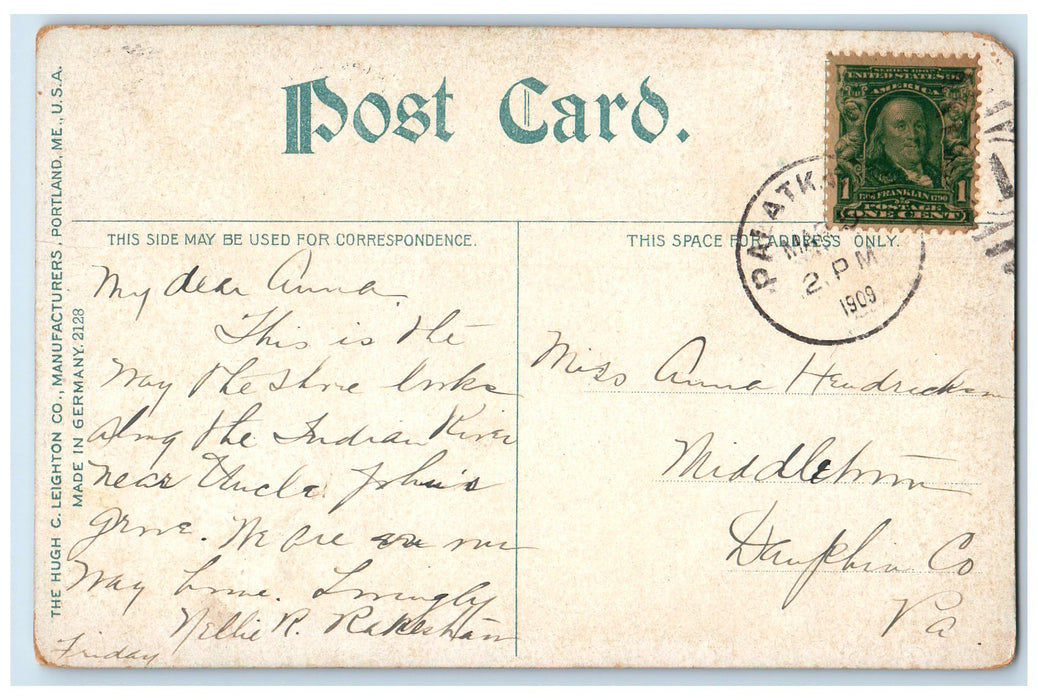 Post Card.
SERIES 1902
UNITED STATES OF
AMERICA
1 1706 FRANKLIN 1790 1
POSTAGE
ONE CENT
PALATKA
MAR
2. PM
1909
THE HUGH C. LEIGHTON CO., MANUFACTURERS, PORTLAND, ME., U.S.A.
MADE IN GERMANY. 2128
THIS SIDE MAY BE USED FOR CORRESPONDENCE.
My dear Anna.
This is the
way the shore looks
along the Indian River
near Uncle John's
grove. We are on our
way home. Lovingly
Nellie R.
Friday
THIS SPACE FOR ADDRESS ONLY.
Miss Anna Hendrickson
Middletown
Dauphin Co
Pa.